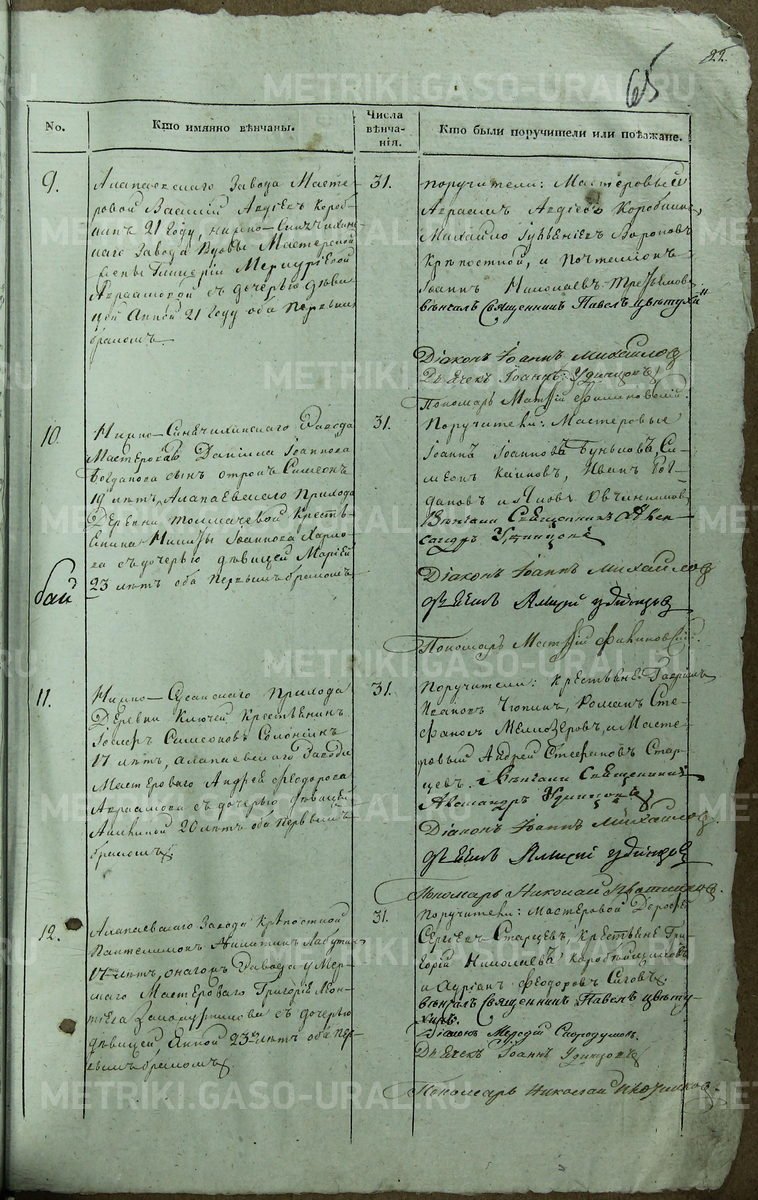 22.
65
No.
Кто имянно вѣнчаны.
Числа вѣнчанія.
Кто были поручители или поѣзжане.
9.
Алапаевскаго Завода Масте-
ровой Василій Авдіевъ Короб-
кинъ 21 году, Нижно-Синячихин-
скаго Завода Вдовы Мастерской
жены Гликеріи Меркуріевой
Абрамовой съ дочерью дѣви-
цей Анной 21 году оба первымъ
бракомъ.
31.
Поручители: Мастеровый
Авдіевъ Коробкинъ,
Михайло Вороновъ
Крѣпостной, и
Іоаннъ Николаевъ
вѣнчалъ Священникъ Павелъ Цвѣтухи
Діаконъ Іоаннъ Михайловъ
Дьячекъ Іоаннъ Удинцовъ
Пономарь Матѳій Филиновскій.
10.
Нижно-Синячихинскаго Завода
Мастероваго Данила Іоаннова
Богданова сынъ отрокъ Симеонъ
19 лѣтъ, Алапаевскаго Прихода
Деревни Толмачевой Кресть-
янина Никиты Іоаннова
съ дочерью дѣвицей Маріей
23 лѣтъ оба первымъ бракомъ
31.
Поручители: Мастеровые
Іоаннъ Іоанновъ Буньковъ, Си-
меонъ Иванъ Бог-
дановъ и Яковъ Овчинниковъ
Вѣнчалъ Священникъ Алек-
сандръ Удинцовъ
Діаконъ Іоаннъ Михайловъ
Дьячекъ Удинцовъ
Пономарь Матѳій Филиновскій.
11.
Нижно-Сусанскаго Прихода
Деревни Ключей Крестьянинъ
Симеоновъ
17 лѣтъ, Алапаевскаго Завода
Мастероваго Андрея Ѳеодорова
Абрамова съ дочерью дѣвицей
Акилиной 20 лѣтъ оба первымъ
бракомъ.
31.
Поручители: Крестьяне Гаврiилъ
Романъ Сте-
фановъ Мелкозеровъ, и Масте-
ровый Андрей Стефановъ Стар-
цевъ. Вѣнчалъ Священникъ
Александръ Удинцовъ
Діаконъ Іоаннъ Михайловъ.
Дьячекъ Удинцовъ
Пономарь Николай
12.
Алапаевскаго Завода Крѣпостной
Пантелимонъ Никитинъ
17 лѣтъ, онагожъ Завода умер-
шаго Мастероваго Григорія Леон-
тіева съ дочерью
дѣвицей, Анной 23 лѣтъ оба пер-
вымъ бракомъ.
31.
Поручители: Мастеровой
Сергѣевъ Старцевъ, Крестьяне Гри-
горій Николаевъ Коробейщиковъ
и Ѳеодоровъ
вѣнчалъ Священникъ Павелъ Цвѣту-
хинъ.
Діаконъ Меѳодій
Дьячекъ Іоаннъ Удинцовъ
Пономарь Николай
METRIKI.GASO-URAL.RU